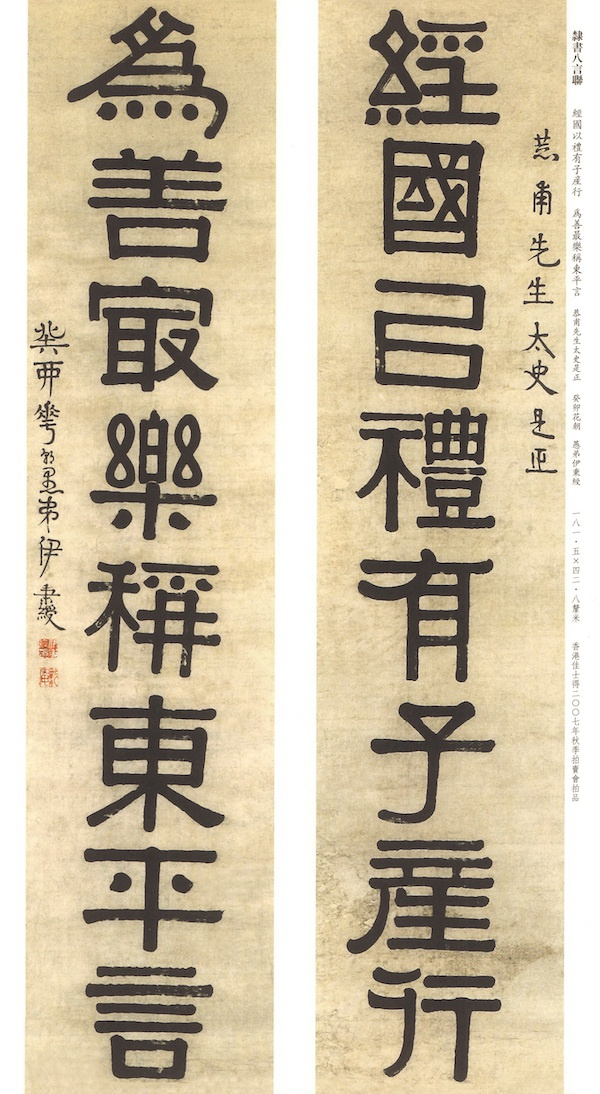 隸書八言聯　經國以禮有子產行　為善最樂稱東平言　恭甫先生太史是正　癸卯花朝　愚弟伊秉綬　一八一·五×四二·八釐米　香港佳士得二〇〇七年秋季拍賣會拍品
恭甫先生太史是正
經國㠯禮有子產行
為善冣樂稱東平言
癸丣花朝愚弟伊秉綬